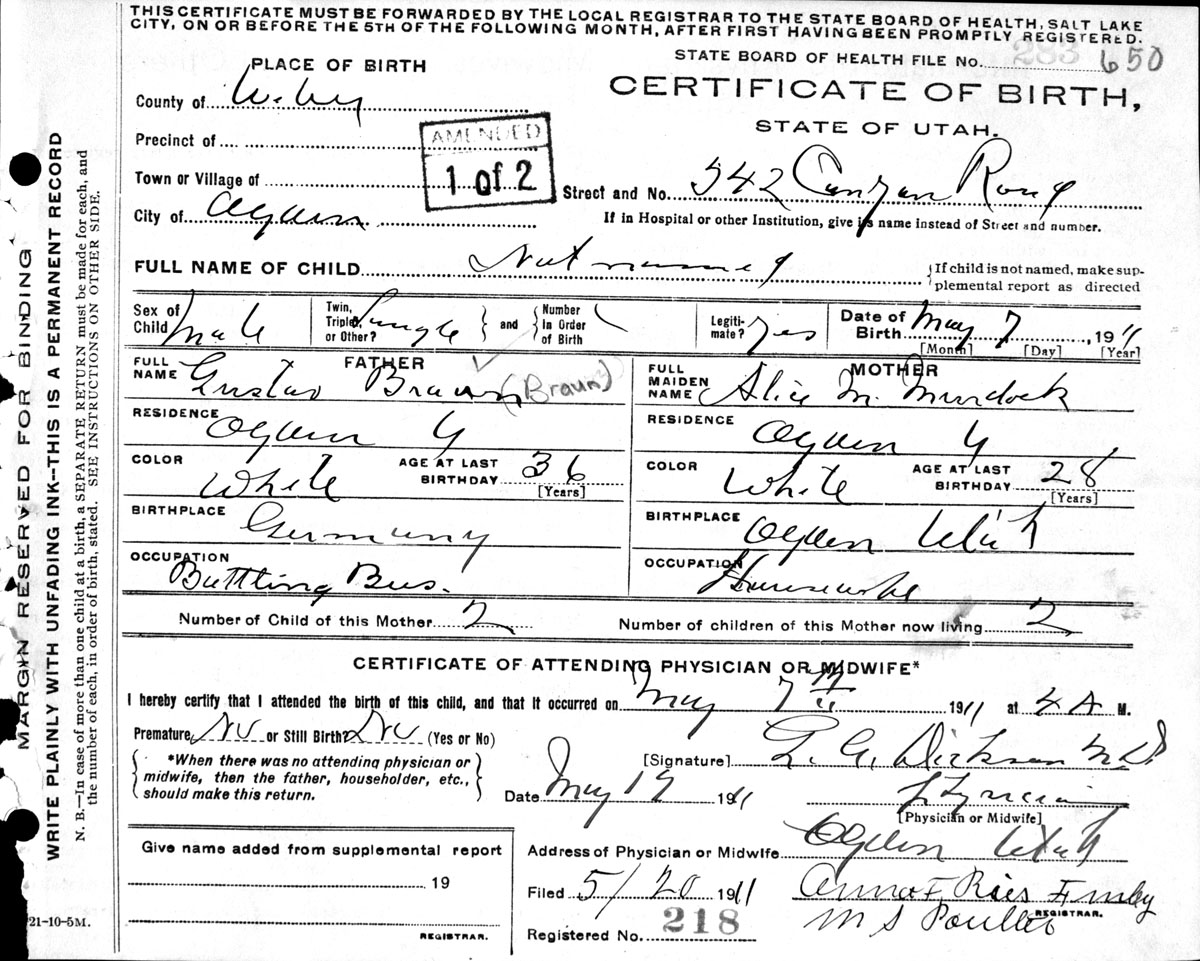 THIS CERTIFICATE MUST BE FORWARDED BY THE LOCAL REGISTRAR TO THE STATE BOARD OF HEALTH, SALT LAKE
CITY, ON OR BEFORE THE 5TH OF THE FOLLOWING MONTH, AFTER FIRST HAVING BEEN PROMPTLY REGISTERED.
STATE BOARD OF HEALTH FILE No. 283 650
PLACE OF BIRTH
CERTIFICATE OF BIRTH,
STATE OF UTAH.
County of Weber
Precinct of
AMENDED
1 of 2
Town or Village of
Street and No. 542 Canyon Road
City of Ogden
If in Hospital or other Institution, give its name instead of Street and number.
FULL NAME OF CHILD Not named
If child is not named, make sup-
plemental report as directed
Sex of Child Male
Twin, Triplet, or Other? Single
and
Number In Order of Birth
Legiti-mate? Yes
Date of Birth May 7, 1911
[Month] [Day] [Year]
FATHER
FULL NAME Gustav Braun (Braun)
RESIDENCE Ogden U
COLOR White
AGE AT LAST BIRTHDAY 36
[Years]
BIRTHPLACE Germany
OCCUPATION Bottling Bus.
MOTHER
FULL MAIDEN NAME Alice M. Murdock
RESIDENCE Ogden U
COLOR White
AGE AT LAST BIRTHDAY 28
[Years]
BIRTHPLACE Ogden Utah
OCCUPATION Housewife
Number of Child of this Mother 2
Number of children of this Mother now living 2
CERTIFICATE OF ATTENDING PHYSICIAN OR MIDWIFE*
I hereby certify that I attended the birth of this child, and that it occurred on May 7th 1911 at 4 A M.
Premature No or Still Birth? No (Yes or No)
*When there was no attending physician or
midwife, then the father, householder, etc.,
should make this return.
[Signature] Dickson M.D.
Date May 19 1911
Physician
[Physician or Midwife]
Give name added from supplemental report
19
REGISTRAR.
Address of Physician or Midwife Ogden Utah
Filed 5/20 1911
Anna F. Ries Emsby
M S Poulter
REGISTRAR.
Registered No. 218
21-10-5M.
MARGIN RESERVED FOR BINDING
WRITE PLAINLY WITH UNFADING INK--THIS IS A PERMANENT RECORD
N. B.—In case of more than one child at a birth, a SEPARATE RETURN must be made for each, and
the number of each, in order of birth, stated. SEE INSTRUCTIONS ON OTHER SIDE.